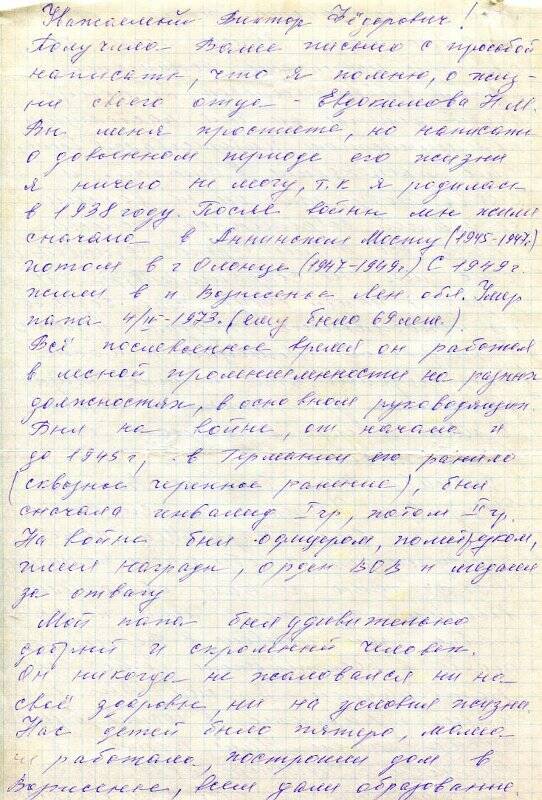 Уважаемый Виктор Фёдорович!
Получила Ваше письмо с просьбой
написать, что я помню, о жиз-
ни своего отца - Евдокимова Н.М.
Вы меня простите, но написать
о довоенном периоде его жизни
я ничего не могу, т.к я родилась
в 1938 году. После войны мы жили
сначала в Аннинском Мосту (1945-1947г.)
потом в г Олонце (1947-1949г) С 1949 г.
жили в п Вознесенье Лен. обл. Умер
папа 1973. (ему было 69 лет.)
Всё послевоенное время он работал
в лесной промышленности на разных
должностях, в основном руководящих.
Был на войне, от начала и
до 1945 г, в Германии его ранило
(сквозное черепное ранение), был
сначала инвалид I гр, потом II гр.
На войне был офицером, политруком,
имел награды, орден ВОВ и медаль
за отвагу
Мой папа был удивительно
добрый и скромный человек.
Он никогда не жаловался ни на
своё здоровье, ни на условия жизни.
Нас детей было пятеро, мама
не работала, построили дом в
Вознесенье, всем дали образование.